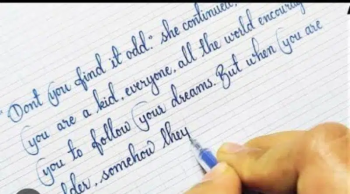 "Dont you find it odd." she continued,
you are a kid, everyone, all the world encourag
you to follow your dreams. But when you are
lder, somehow they